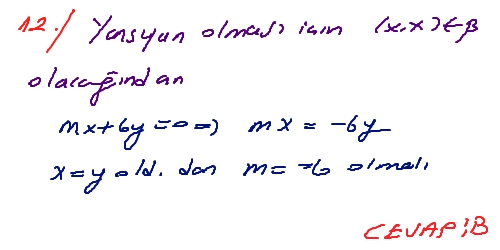 12./ Yansıyan olması için (x,x)∈β
olacağından
mx+6y=0 => mx = -6y
x=y old. dan m=-6 olmalı
CEVAP:B